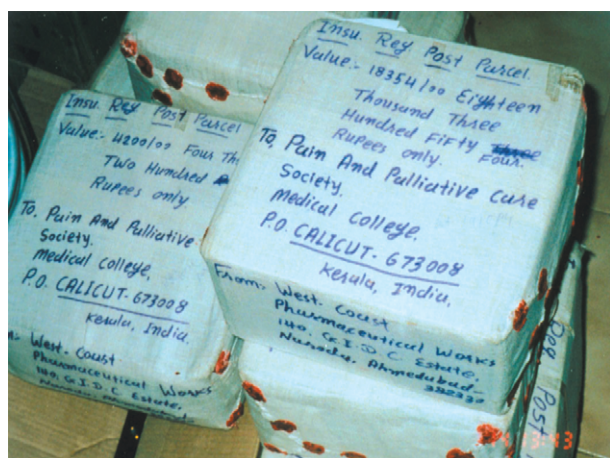 Insu. Reg. Post Parcel.
Value:- 18354/00 Eighteen
Thousand Three
Hundred Fifty Four.
Rupees only.
To, Pain And Palliative Care
Society.
Medical College.
P.O. CALICUT-673008
Kerala, India.
From:- West. Coast
Pharmaceutical Works
140, G.I.D.C Estate,
Naroda, Ahmedabad-
382330
Insu. Reg Post Parcel
Value:- 4200/00 Four Th
Two Hundred
Rupees only
To, Pain And Palliative
Society.
Medical College,
P.O. CALICUT-673008
Kerala, India.
West. Coast
Pharmaceutical Works
140, G.I.D.C Estate,
Naroda, Ahmedabad
Reg Post
13:43